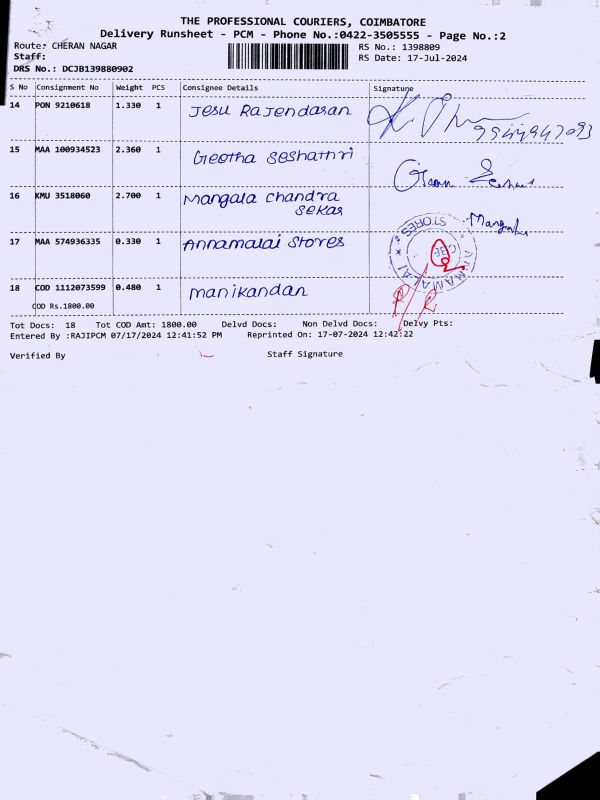 THE PROFESSIONAL COURIERS, COIMBATORE
Delivery Runsheet - PCM - Phone No.:0422-3505555 - Page No.:2
Route: CHERAN NAGAR RS No.: 1398809
Staff: RS Date: 17-Jul-2024
DRS No.: DCJB139880902
S No Consignment No Weight PCS Consignee Details Signature
14 PON 9210618 1.330 1 Jesu Rajendasan
15 MAA 100934523 2.360 1 Geetha Seshathri
16 KMU 3518060 2.700 1 Mangala chandra
sekar
17 MAA 574936335 0.330 1 Annamalai Stores
ANNAMALAI STORES
CBE
18 COD 1112073599 0.480 1 Manikandan
COD Rs.1800.00
Tot Docs: 18 Tot COD Amt: 1800.00 Delvd Docs: Non Delvd Docs: Delvy Pts:
Entered By :RAJIPCM 07/17/2024 12:41:52 PM Reprinted On: 17-07-2024 12:42:22
Verified By Staff Signature